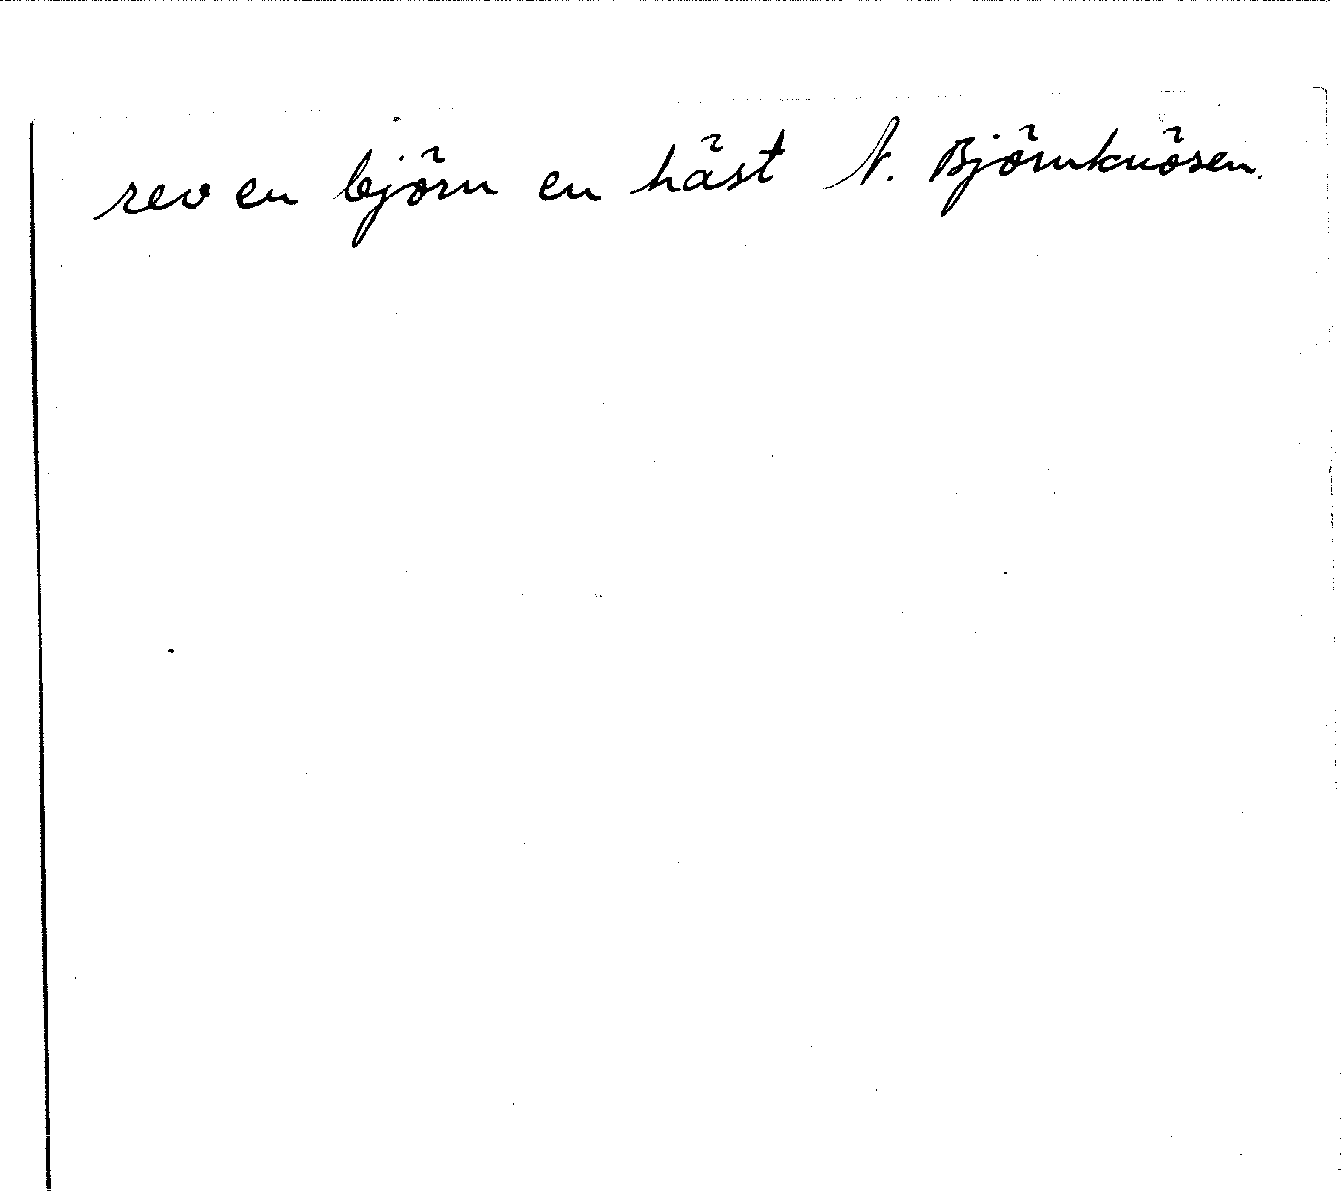 rev en björn en häst N. Björnknösen.